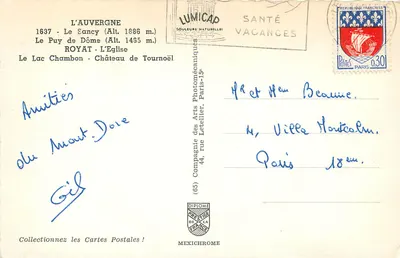 L'AUVERGNE
1637 - Le Sancy (Alt. 1886 m.)
Le Puy de Dôme (Alt. 1465 m.)
ROYAT - L'Eglise
Le Lac Chambon - Château de Tournoël
LUMICAP
COULEURS NATURELLES
SANTÉ
VACANCES
PARIS
0,30
Amitiés
du Mont-Dore
Gil
(65) Compagnie des Arts Photomécaniques
44, rue Letellier, Paris-15e
Mr et Mme Beaune
4, Villa Montcalm
Paris 18em.
DIPLOME
MEXICHROME
Collectionnez les Cartes Postales !